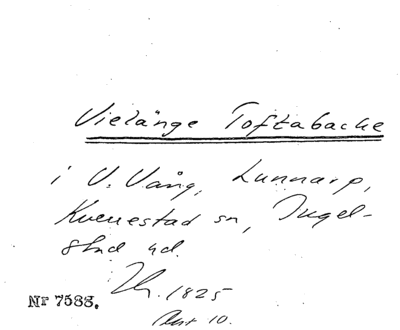 Vielänge Toftabacke
i V. Vång, Lunnarp,
Kverrestad sn, Ingel-
stad hd.
1825
Akt 10.
Nr 7588.